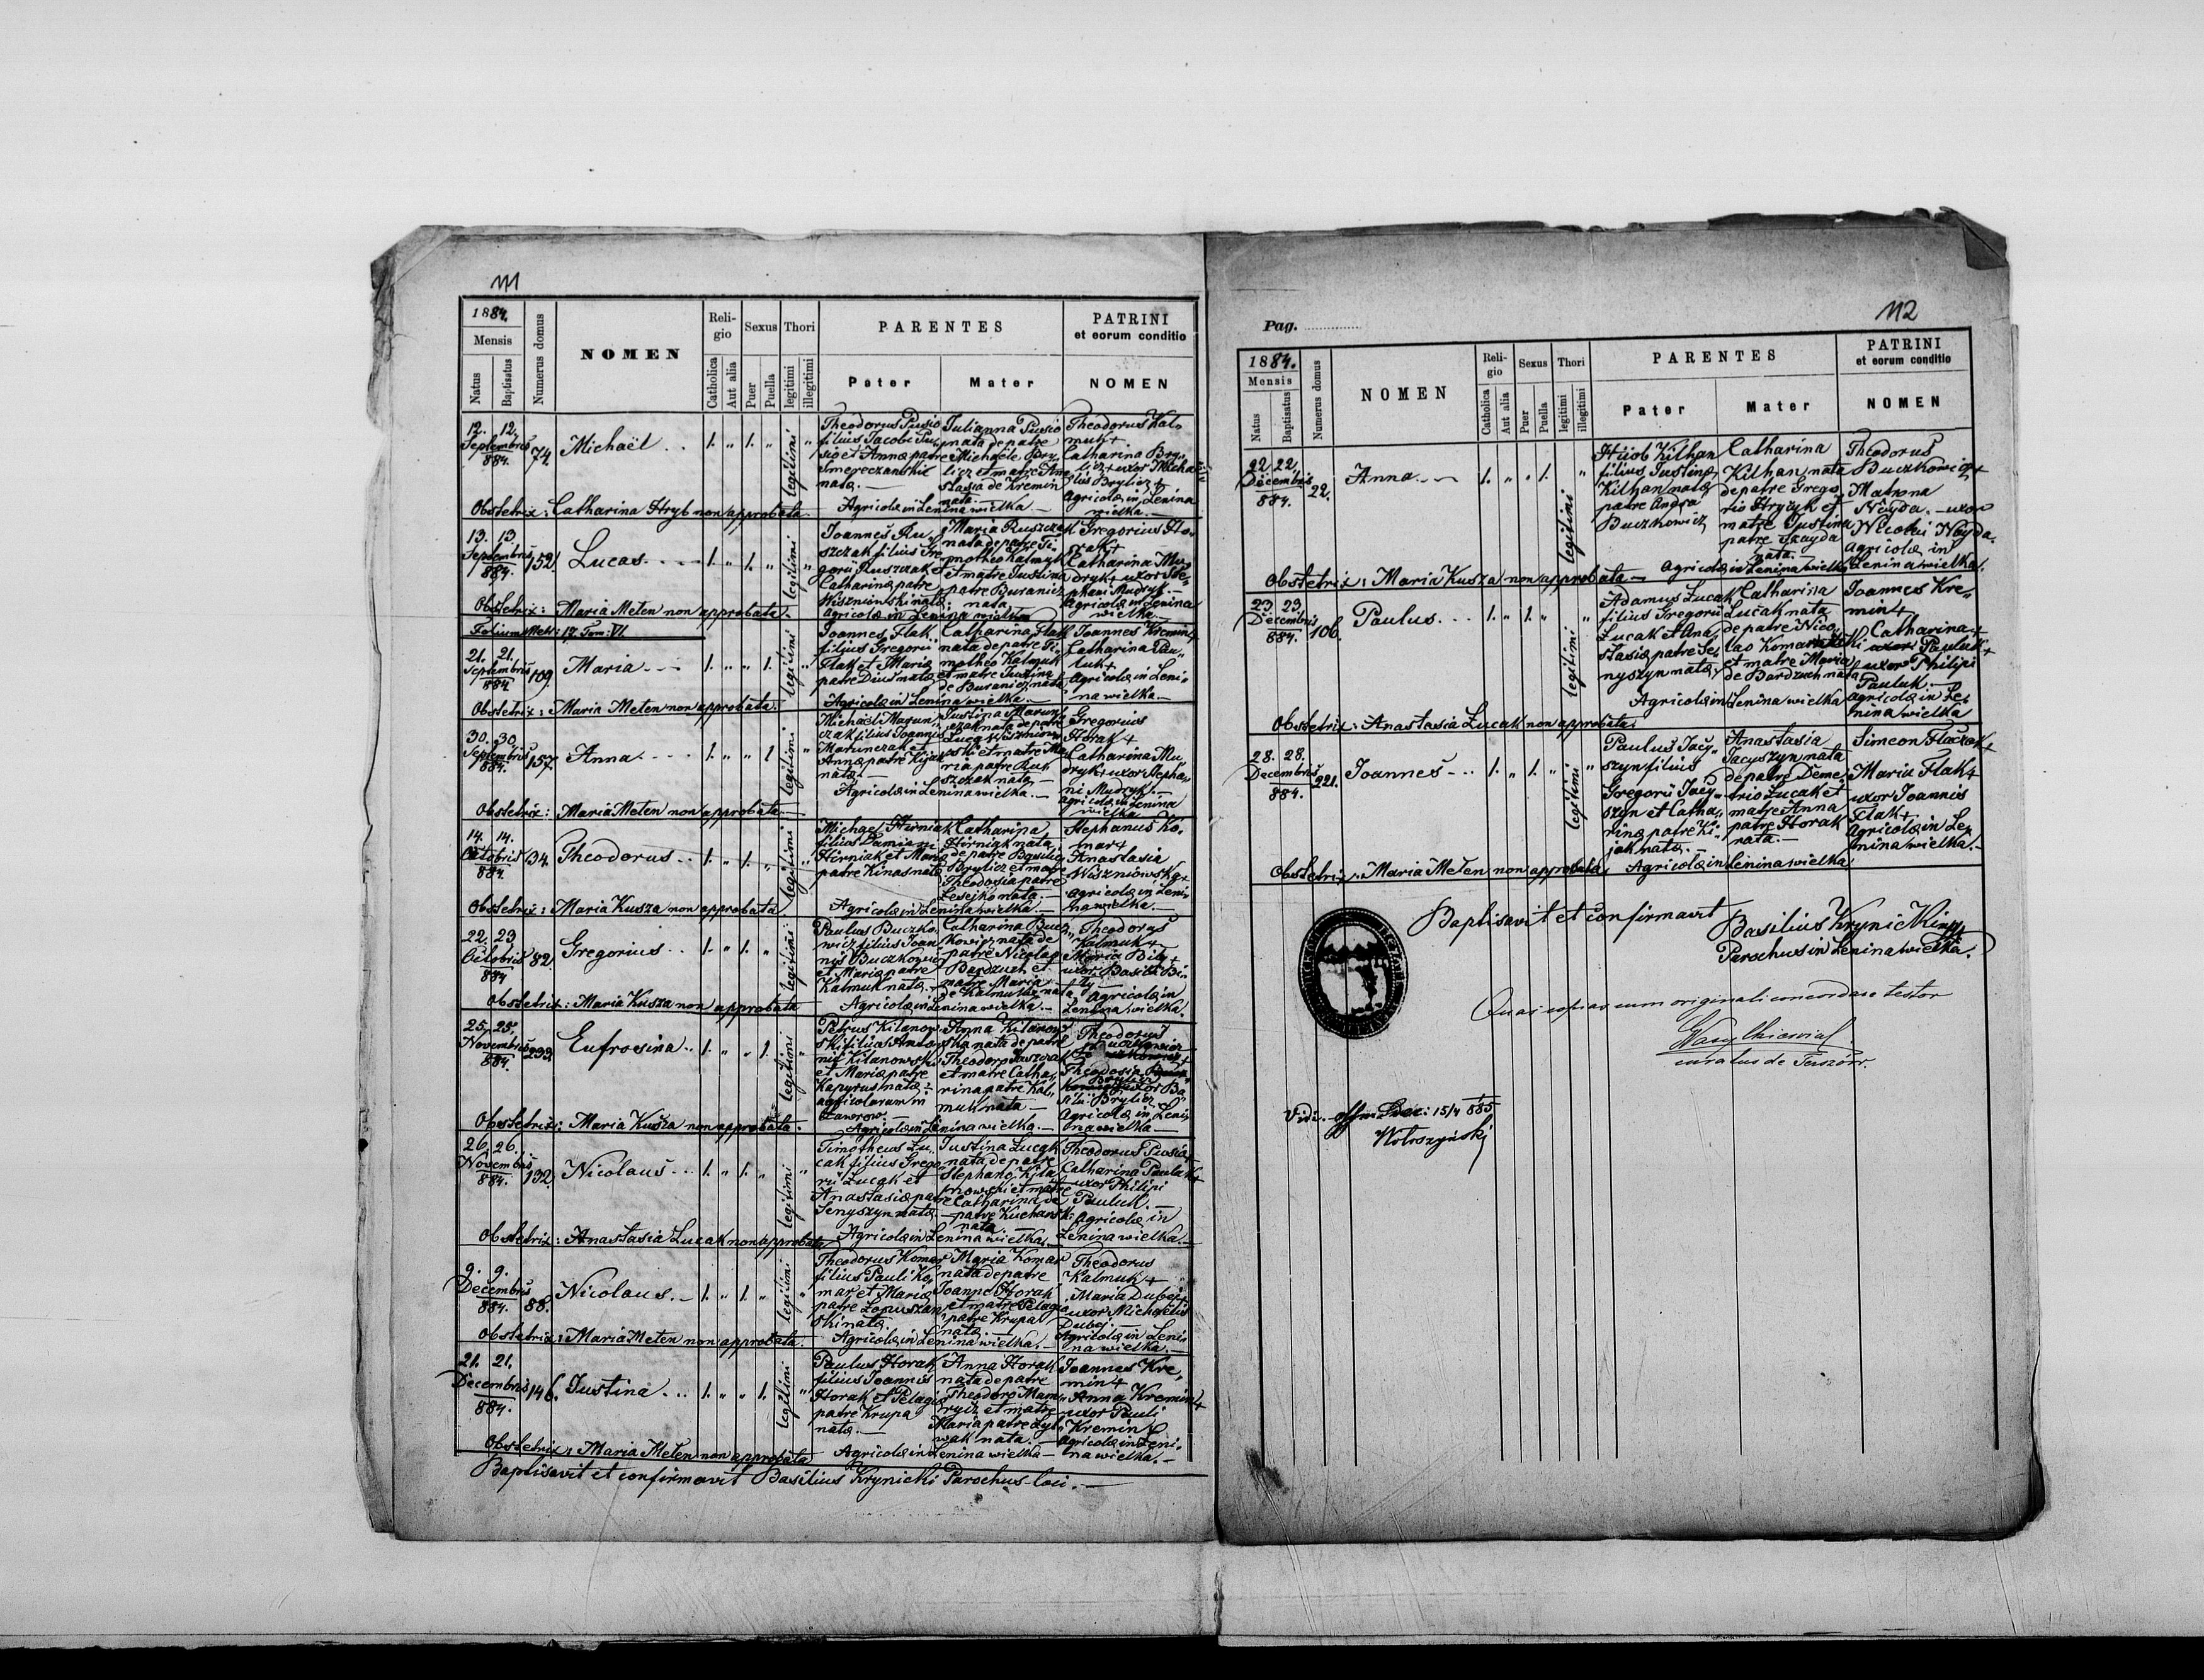 111
1884.
Mensis
Natus
Baptisatus
Numerus domus
NOMEN
Reli-
gio
Catholica
Aut alia
Sexus
Puer
Puella
Thori
legitimi
illegitimi
PARENTES
Pater
Mater
PATRINI
et eorum conditio
NOMEN
12. 12.
Septembris
884.
74.
Michaël . .
1. „ 1. „
legitimi
Theodorus Pusio
filius Jacobi Pu„
sio et Annæ patre
Smereczanskie
nata. —
Julianna Pusio
nata de patre
Michaële Bry„
licz et matre Ana
stasia de Kremin
nata. —
Agricolæ in Lenina wielka —
Theodorus Kal„
muk +
Catharina Bry„
licz + uxor Micha
ëlis Brylicz +
Agricolæ in Lenina
wielka. —
Obstetrix: Catharina Hryb non approbata. —
13. 13.
Septembris
884.
152.
Lucas. . . . —
1. „ 1. „
legitimi
Joannes Ru„
szczak filius Gre
gorii Ruszczak et
Catharinæ patre
Wiszniowski nata
Maria Ruszczak
nata de patre Ti„
motheo Kalmuk
et matre Justina
patre Buranicz
nata
Agricolæ in Lenina wielka
Gregorius Ho„
rak +
Catharina Mu„
dryk + uxor Ste„
phani Mudryk. —
Agricolæ in Lenina
wielka. —
Obstetrix: Maria Meten non approbata. —
21. 21.
Septembris
884
109.
Maria . . —
1. „ „ 1.
legitimi
Joannes Flak
filius Gregorii
Flak et Mariæ
patre Dius nata
Catharina Flak
nata de patre Ti„
motheo Kalmuk
et matre Justina
de Buranicz nata
Agricolæ in Lenina wielka. —
Joannes Kremin +
Catharina Pau„
luk +
Agricolæ in Leni„
na wielka —
Obstetrix: Maria Meten non approbata.
30. 30.
Septembris
884.
157.
Anna. . . —
1. „ „ 1
legitimi
Michaël Marun„
czak filius Joannis
Marunczak et
Annæ patre Kijak
nata. —
Justina Marun„
czak nata de patre
Luca Wisznio„
wski et matre Ma„
ria patre Ru„
szczak nata. —
Agricolæ in Lenina wielka. —
Gregorius
Horak +
Catharina Mu„
dryk + uxor Stepha„
ni Mudryk. —
Agricolæ in Lenina
wielka
Obstetrix: Maria Meten non approbata
14. 14.
Octobris
884.
134.
Theodorus . .
1. „ 1. „
legitimi
Michael Hirniak
filius Damiani
Hirniak et Mariæ
patre Kinas nata
Catharina
Hirniak nata
de patre Basilio
Brylicz et matre
Theodosia patre
Lesejko nata. —
Agricolæ in Lenina wielka. —
Stephanus Ko„
mar +
Anastasia
Wiszniowska +
Agricolæ in Leni„
na wielka. —
Obstetrix: Maria Kusza non approbata.
22. 23
Octobris
884
82.
Gregorius . .
1. „ 1. „
legitimi
Paulus Buczko„
wicz filius Joan
nis Buczkowicz
et Mariæ patre
Kalmuk nata. —
Catharina Bucz„
kowicz nata de
patre Nicolao
Bardzuch et
matre Maria
de Kalmuk nata
Agricolæ in Lenina wielka. —
Theodorus
Kalmuk +
Maria Bily +
uxor Basilii Bi„
ly —
Agricolæ in
Lenina wielka.
Obstetrix: Maria Kusza non approbata
25. 25.
Novembris
884.
233.
Eufrosina . .
1. „ „ 1.
legitimi
Petrus Kilanow
ski filius Anto
nii Kilanowski
et Mariæ patre
Kapyrus nata
agricolarum in
Jaworow. —
Anna Kilanow
ska nata de patre
Theodoro Jaszczak
et matre Catha„
rina patre Kal„
muk nata —
Agricolæ in Lenina wielka. —
Theodorus
Theodosia
uxor Ba„
silii Brylicz
Agricolæ in Leni„
na wielka —
Obstetrix: Maria Kusza non approbata.
26. 26.
Novembris
884.
132.
Nicolaus . . .
1. „ 1. „
legitimi
Timotheus Lu„
cak filius Grego
rii Lucak et
Anastasiæ patre
Senyszyn nata
Justina Lucak
nata de patre
Stephano Kila
nowski et matre
Catharina de
patre Kucharski
nata
Agricolæ in Lenina wielka. —
Theodorus Pusio +
Catharina Pauluk +
uxor Philipi
Pauluk. —
Agricolæ in
Lenina wielka. —
Obstetrix: Anastasia Lucak non approbata
9. 9.
Decembris
884.
88.
Nicolaus. —
1. „ 1. „
legitimi
Theodorus Komar
filius Pauli Ko„
mar et Mariæ
patre Lopuszan
ski nata.
Maria Komar
nata de patre
Joanne Horak
et matre Pelagia
patre Krupa
nata. —
Agricolæ in Lenina wielka. —
Theodorus
Kalmuk +
Maria Dubej +
uxor Michaëlis
Dubej. —
Agricolæ in Leni„
na wielka. —
Obstetrix: Maria Meten non approbata.
21. 21.
Decembris
884.
146.
Justina . . .
1. „ „ 1.
legitimi
Paulus Horak
filius Joannis
Horak et Pelagiæ
patre Krupa
nata. —
Anna Horak
nata de patre
Theodoro Mam„
rycz et matre
Maria patre
nata. —
Agricolæ in Lenina wielka —
Joannes Kre„
min +
Anna Kremin +
uxor Pauli
Kremin
Agricolæ in Leni„
na wielka. —
Obstetrix: Maria Meten non approbata
Baptisavit et confirmavit Basilius Krynicki Parochus loci. —
112
Pag.
1884.
Mensis
Natus
Baptisatus
Numerus domus
NOMEN
Reli-
gio
Catholica
Aut alia
Sexus
Puer
Puella
Thori
legitimi
illegitimi
PARENTES
Pater
Mater
PATRINI
et eorum conditio
NOMEN
22. 22.
Decembris
884.
22.
Anna. —
1. „ „ 1.
legitimi
Hiiob Kilhan
filius Justinæ
Kilhan nata
patre Andrea
Buczkowicz
Catharina
Kilhan nata
de patre Grego
rio Hrycyk et
matre Justina
patre
nata. —
Agricolæ in Lenina wielka
Theodorus
Buczkowicz +
Matrona
Nayda. — uxor
Nicolai Nayda.
Agricolæ in
Lenina wielka.
Obstetrix: Maria Kusza non approbata —
23. 23.
Decembris
884.
106.
Paulus. . .
1. „ 1. „
legitimi
Adamus Lucak
filius Gregorii
Lucak et Ana„
stasiæ patre Se„
nyszyn nata
Catharina
Lucak nata
de patre Nico„
lao Komarnicki
et matre Maria
de Bardzuch nata
Agricolæ in Lenina wielka
Joannes Kre„
min +
Catharina +
Pauluk +
uxor Philipi
Pauluk. —
Agricolæ in Le„
nina wielka
Obstetrix: Anastasia Lucak non approbata.
28. 28.
Decembris
884.
221.
Joannes . . .
1. „ 1. „
legitimi
Paulus Jacy„
szyn filius
Gregorii Jacy„
szyn et Catha„
rinæ patre Ki„
jak nata. —
Anastasia
Jacyszyn nata
de patre Deme„
trio Lucak et
matre Anna
patre Horak
nata. —
Agricolæ in Lenina wielka
Simeon +
Maria Flak +
uxor Joannis
Flak +
Agricolæ in Le„
nina wielka. —
Obstetrix: Maria Meten non approbata,
Baptisavit et confirmavit
Basilius Krynicki
Parochus in Lenina wielka.
Quas copias cum originali concordare testor
curatus de
Vidi. 15/4 885
Wołoszyński